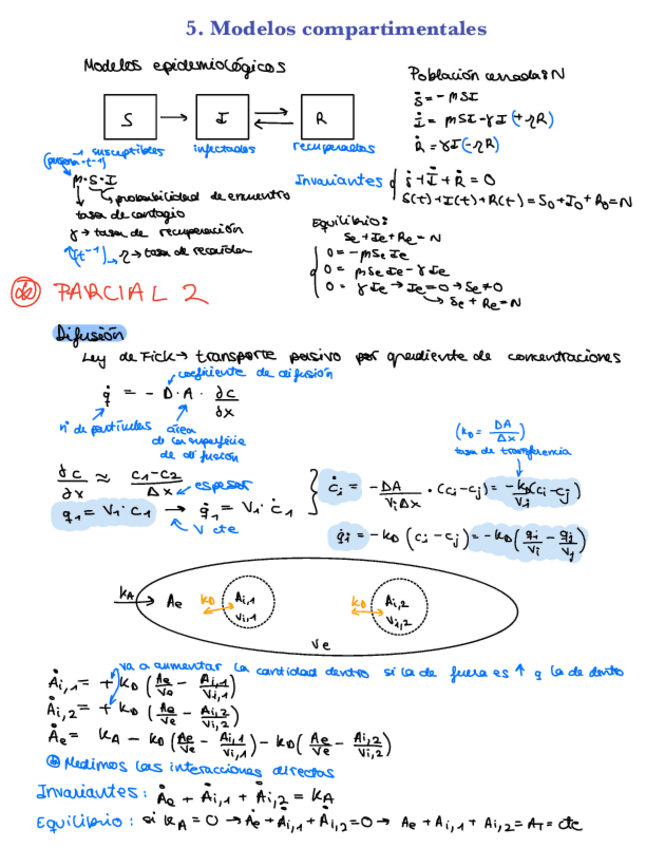 5. Modelos compartimentales
Modelos epidemiológicos
S → I ⇄ R
susceptibles infectados recuperados
(persona⁻¹·t⁻¹)
m·S·I
probabilidad de encuentro
tasa de contagio
γ → tasa de recuperación
(t⁻¹) → η → tasa de recaídas
Población cerrada: N
Ṡ = - mSI
İ = mSI - γI (+ηR)
Ṙ = γI (-ηR)
Invariantes { Ṡ + İ + Ṙ = 0
S(t) + I(t) + R(t) = S₀ + I₀ + R₀ = N
Equilibrio:
Se + Ie + Re = N
0 = - mSe Ie
0 = mSe Ie - γIe
0 = γ Ie → Ie = 0 → Se ≠ 0
→ Se + Re = N
PARCIAL 2
Difusión
Ley de Fick → transporte pasivo por gradiente de concentraciones
coeficiente de difusión
q̇ = - D·A · ∂c/∂x
nº de partículas
área de la superficie de difusión
∂c/∂x ≈ (c1 - c2)/Δx ← espesor
q1 = V1·c1 → q̇1 = V1·ċ1
V cte
(kD = DA/Δx)
tasa de transferencia
ċi = - DA/(ViΔx) · (ci - cj) = - kD/Vi (ci - cj)
q̇i = - kD (ci - cj) = - kD (qi/Vi - qj/Vj)
kA → Ae kD Ai,1 Vi,1 kD Ai,2 Vi,2
Ve
va a aumentar la cantidad dentro si la de fuera es ↑ q la de dentro
Ȧi,1 = + kD (Ae/Ve - Ai,1/Vi,1)
Ȧi,2 = + kD (Ae/Ve - Ai,2/Vi,2)
Ȧe = kA - kD (Ae/Ve - Ai,1/Vi,1) - kD (Ae/Ve - Ai,2/Vi,2)
Medimos las interacciones directas
Invariantes: Ȧe + Ȧi,1 + Ȧi,2 = kA
Equilibrio: si kA = 0 → Ȧe + Ȧi,1 + Ȧi,2 = 0 → Ae + Ai,1 + Ai,2 = AT = cte